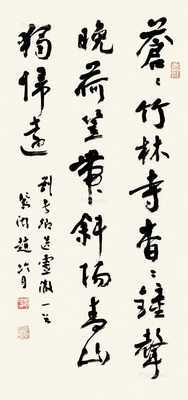 蒼〻竹林寺杳〻鐘聲
晚荷笠帶斜陽青山
獨歸遠
劉長卿送靈澈一首
趙冷月